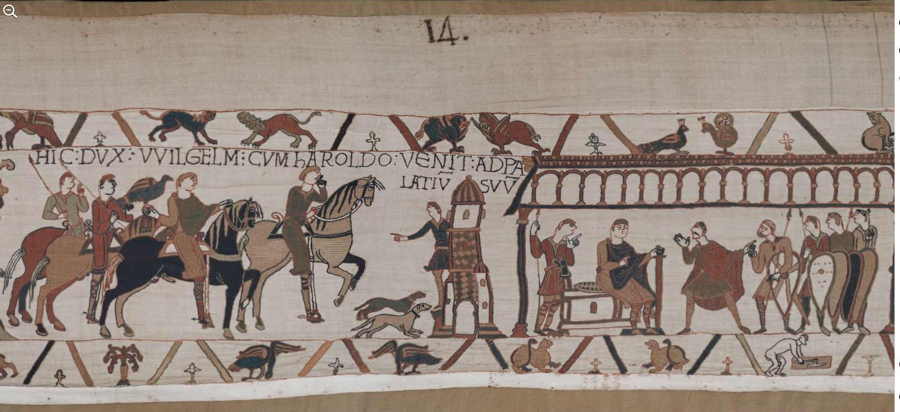 14.
HIC:DVX:VVILGELM:CVM hAROLDO:VENIT:ADPA
LATIV̄ SVV̄